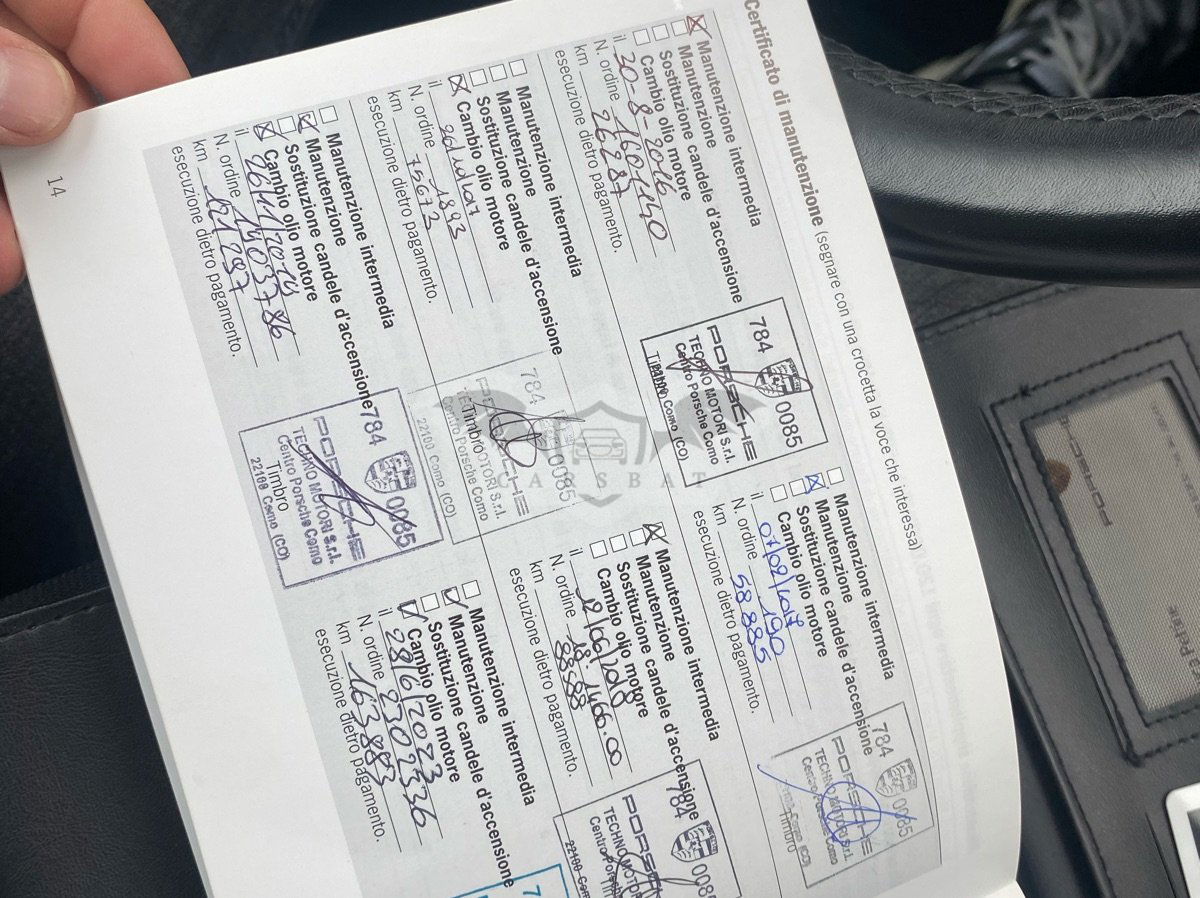 Certificato di manutenzione (segnare con una crocetta la voce che interessa)
Manutenzione intermedia
Manutenzione
Sostituzione candele d'accensione
Cambio olio motore
il 30-8-2016
N. ordine
km 26287
esecuzione dietro pagamento.
784 0085
PORSCHE
TECHNO MOTORI S.r.l.
Centro Porsche Como
22100 Como (CO)
Timbro
Manutenzione intermedia
Manutenzione
Sostituzione candele d'accensione
Cambio olio motore
il
N. ordine 190
km 58885
esecuzione dietro pagamento.
784 0085
PORSCHE
TECHNO MOTORI S.r.l.
Centro Porsche Como
22100 Como (CO)
Timbro
Manutenzione intermedia
Manutenzione
Sostituzione candele d'accensione
Cambio olio motore
il
N. ordine 1893
km 75673
esecuzione dietro pagamento.
784 0085
PORSCHE
Centro Porsche Como
22100 Como (CO)
Timbro
Manutenzione intermedia
Manutenzione
Sostituzione candele d'accensione
Cambio olio motore
il
N. ordine
km 88588
esecuzione dietro pagamento.
784
PORS
TECHNO MOTOR
Centro Porsch
22100 Com
Manutenzione intermedia
Manutenzione
Sostituzione candele d'accensione
Cambio olio motore
il
N. ordine
km 121297
esecuzione dietro pagamento.
784 0085
PORSCHE
TECHNO MOTORI S.r.l.
Centro Porsche Como
Timbro
22100 Como (CO)
Manutenzione intermedia
Manutenzione
Sostituzione candele d'accensione
Cambio olio motore
il 28/6/2023
N. ordine 2302336
km 163883
esecuzione dietro pagamento.
7
14
CARSBAT
PORSCHE